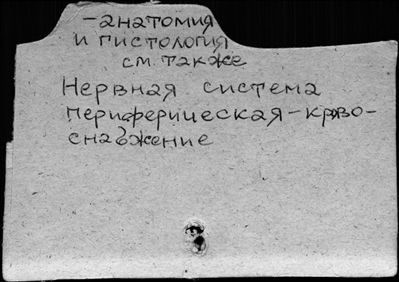 -анатомия
и гистология
см. также
Нервная система
периферическая - крово-
снабжение